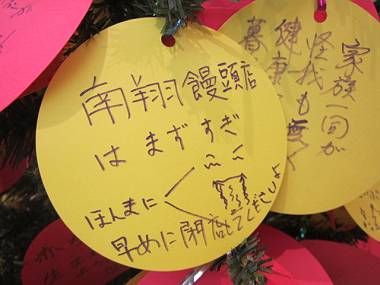 南翔饅頭店
はまずすぎ
ほんまに
早めに閉店してくださいよ
家族一同が
怪我も無く
健
暮